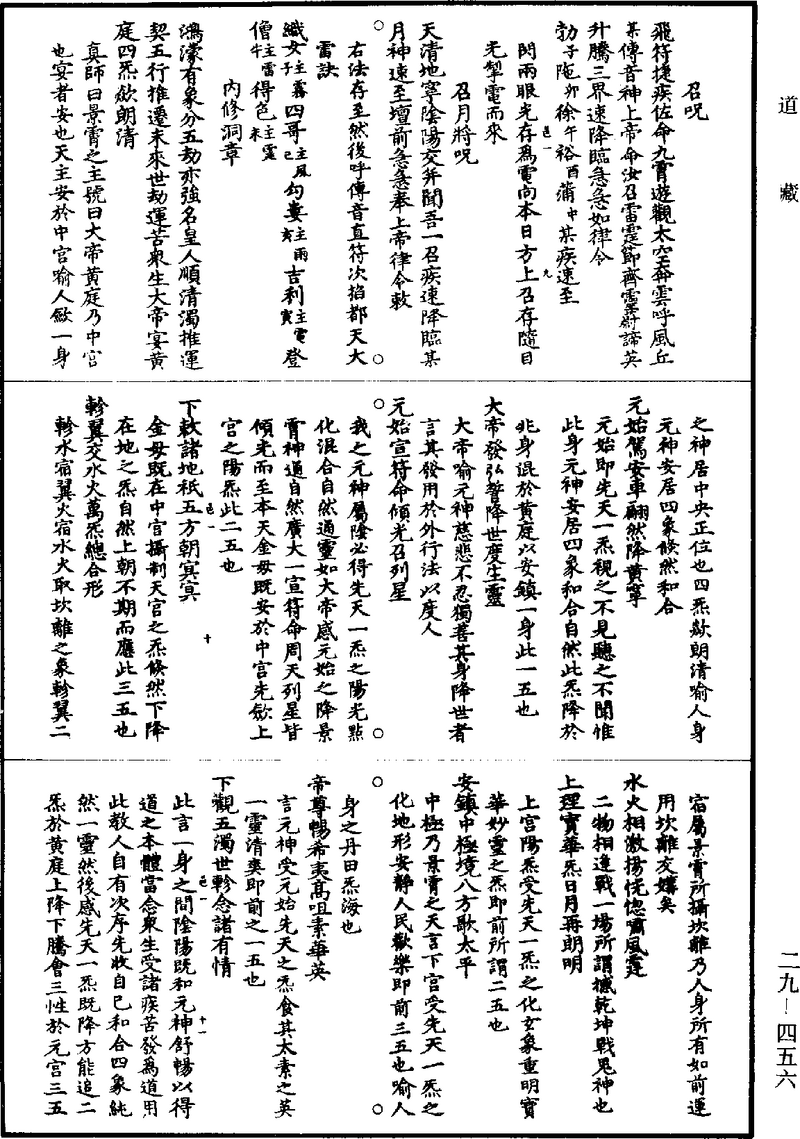 道藏
召呪
飛符捷疾佐命九霄遊觀太空奔雲呼風丘
某傳音神上帝命汝召雷霆節齊霻尉諦英
升騰三界速降臨急急如律令
勃子陁卯徐午裕酉蒲中某疾速至
閃兩眼光存爲電向本日方上召存隨目
光掣電而來
召月將呪
天清地寧陰陽交并聞吾一召疾速降臨某
月神速至壇前急急奉上帝律令敕
右法存至然後呼傳音直符次掐都天大
雷訣
織女主霧子四哥主風巳勾婁主雨亥吉利主電寅登
僧主雷牛得色主霆未
內修洞章
鴻濛有象分五劫亦強名皇人順清濁推運
契五行推遷末來世劫運苦衆生大帝宴黄
庭四炁歛朗清
真師曰景霄之主號曰大帝黄庭乃中宮
也宴者安也天主安於中宮喻人歛一身
之神居中央正位也四炁歛朗清喻人身
元神安居四象倐然和合
元始駕安車翩然降黄寧
元始即先天一炁視之不見聽之不聞惟
此身元神安居四象和合自然此炁降於
兆身混於黄庭以安鎮一身此一五也
大帝發弘誓降世度生靈
大帝喻元神慈悲不忍獨善其身降世者
言其發用於外行法以度人
元始宣符命傾光召列星
我之元神屬陰必得先天一炁之陽光點
化混合自然通靈如大帝感元始之降景
霄神通自然廣大一宣符命周天列星皆
傾光而至本天金母既安於中宮先歛上
宮之陽炁此二五也
下敕諸地祇五方朝冥冥
金母既在中宮攝制天官之炁倐然下降
在地之炁自然上朝不期而應此三五也
軫翼交水火萬炁總合形
軫水宿翼火宿水火取坎離之象軫翼二
宿屬景霄所攝坎離乃人身所有如前運
用坎離交媾矣
水火相激揚恍惚嘯風霆
二物相逢戰一場所謂撼乾坤戰鬼神也
上理寶華炁日月再朗明
上宮陽炁受先天一炁之化玄象重明寶
華妙靈之炁即前所謂二五也
安鎮中極境八方歌太平
中極乃景霄之天言下宮受先天一炁之
化地形安靜人民歡樂即前三五也喻人
身之丹田炁海也
帝尊暢希夷髙咀素華英
言元神受元始先天之炁食其太素之英
一靈清爽即前之一五也
下觀五濁世軫念諸有情
此言一身之間陰陽既和元神舒暢以得
道之本體當念衆生受諸疾苦發爲道用
此教人自有次序先收自己和合四象純
然一靈然後感先天一炁既降方能追二
炁於黄庭上降下騰會三性於元宮三五
二九—四五六